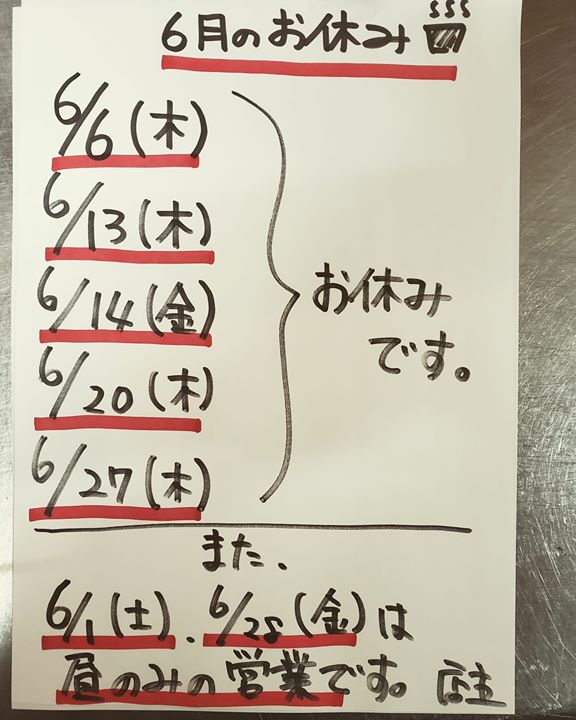 6月のお休み
6/6(木)
6/13(木)
6/14(金)
6/20(木)
6/27(木)
お休み
です。
また、
6/1(土)、6/28(金)は
昼のみの営業です。店主